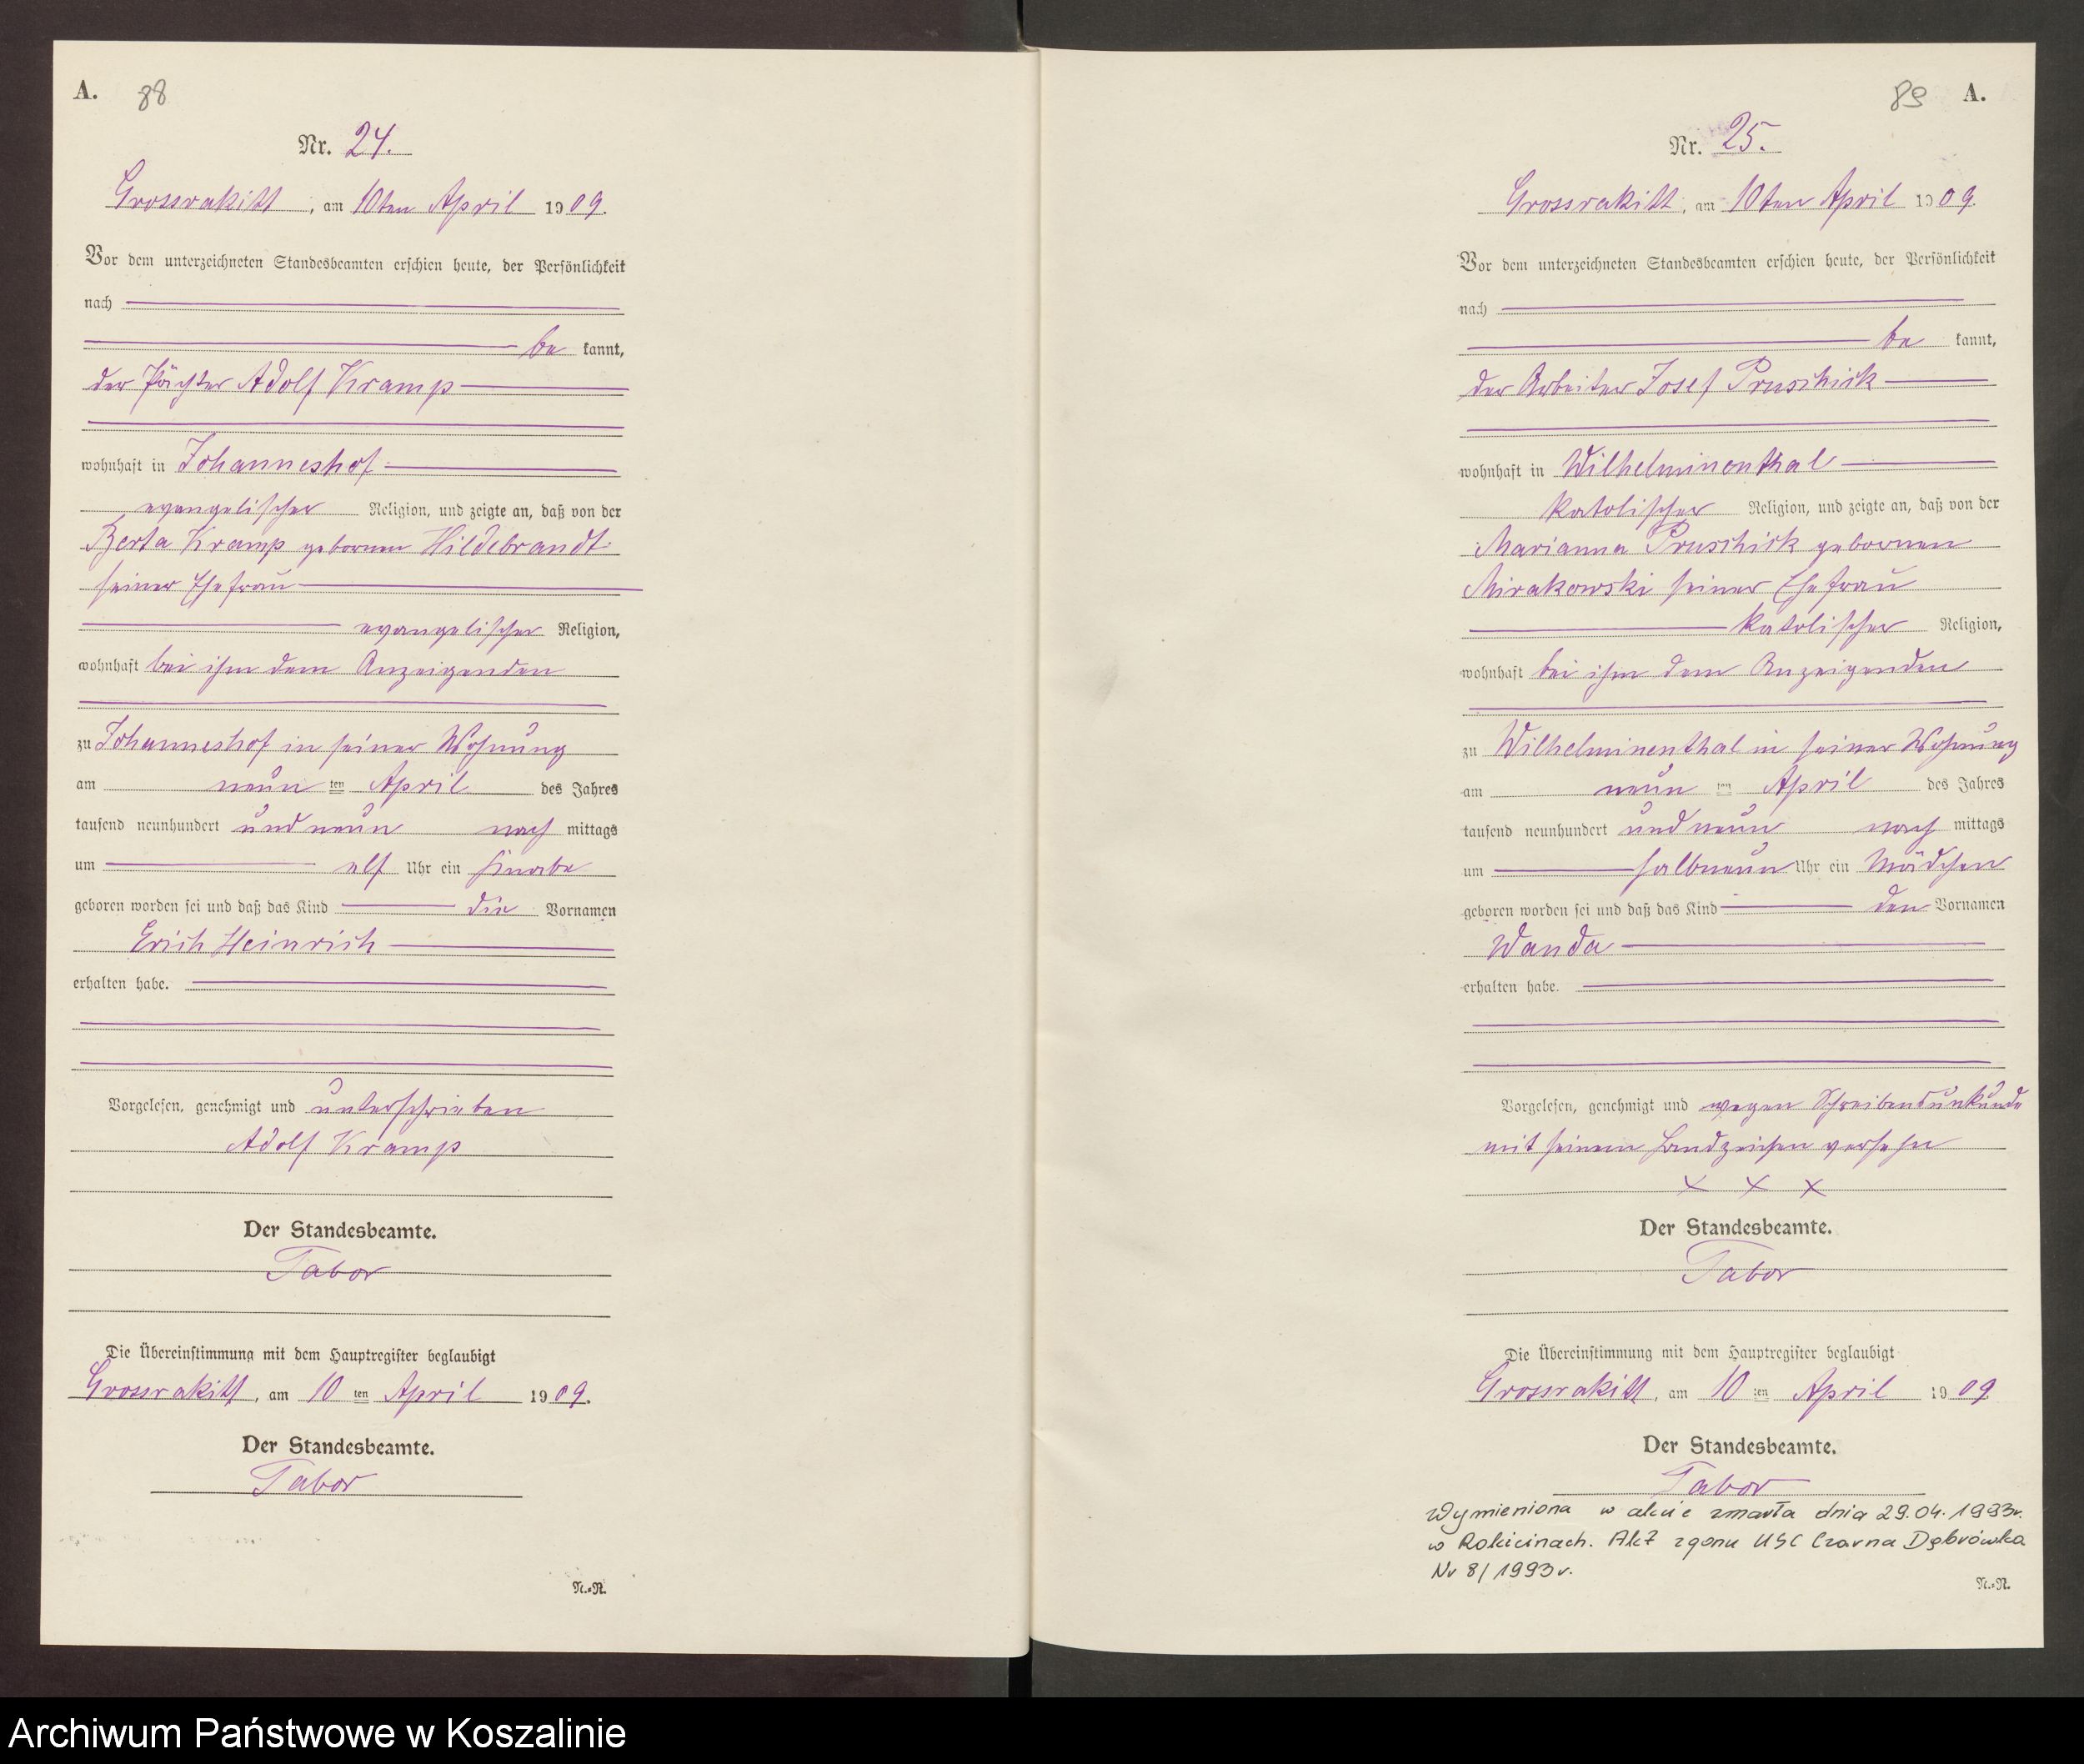 A. 88
Nr. 24.
Grossrakitt, am 10ten April 1909.
Vor dem unterzeichneten Standesbeamten erschien heute, der Persönlichkeit
nach
be kannt,
der Pächter Adolf Kramp
wohnhaft in Johanneshof
evangelischer Religion, und zeigte an, daß von der
Berta Kramp gebornen Hildebrandt
seiner Ehefrau
evangelischer Religion,
wohnhaft bei ihm dem Anzeigenden
zu Johanneshof in seiner Wohnung
am neun ten April des Jahres
tausend neunhundert und neun nach mittags
um elf Uhr ein Knabe
geboren worden sei und daß das Kind die Vornamen
Erich Heinrich
erhalten habe.
Vorgelesen, genehmigt und unterschrieben
Adolf Kramp
Der Standesbeamte.
Tabor
Die Übereinstimmung mit dem Hauptregister beglaubigt
Grossrakitt, am 10 ten April 1909.
Der Standesbeamte.
Tabor
N.=R.
89 A.
Nr. 25.
Grossrakitt, am 10ten April 1909.
Vor dem unterzeichneten Standesbeamten erschien heute, der Persönlichkeit
nach
be kannt,
der Arbeiter Josef Pruschick
wohnhaft in Wilhelminenthal
katolischer Religion, und zeigte an, daß von der
Marianna Pruschick gebornen
Mirakowski seiner Ehefrau
katolischer Religion,
wohnhaft bei ihm dem Anzeigenden
zu Wilhelminenthal in seiner Wohnung
am neun ten April des Jahres
tausend neunhundert und neun nach mittags
um halbneun Uhr ein Mädchen
geboren worden sei und daß das Kind den Vornamen
Wanda
erhalten habe.
Vorgelesen, genehmigt und wegen Schreibensunkunde
mit seinem Handzeichen versehn
x x x
Der Standesbeamte.
Tabor
Die Übereinstimmung mit dem Hauptregister beglaubigt
Grossrakitt, am 10 ten April 1909
Der Standesbeamte.
Tabor
Wymieniona w akcie zmarła dnia 29.04.1993r.
w Rokicinach. Akt zgonu USC Czarna Dąbrówka
Nr 8/1993r.
N.=R.
Archiwum Państwowe w Koszalinie